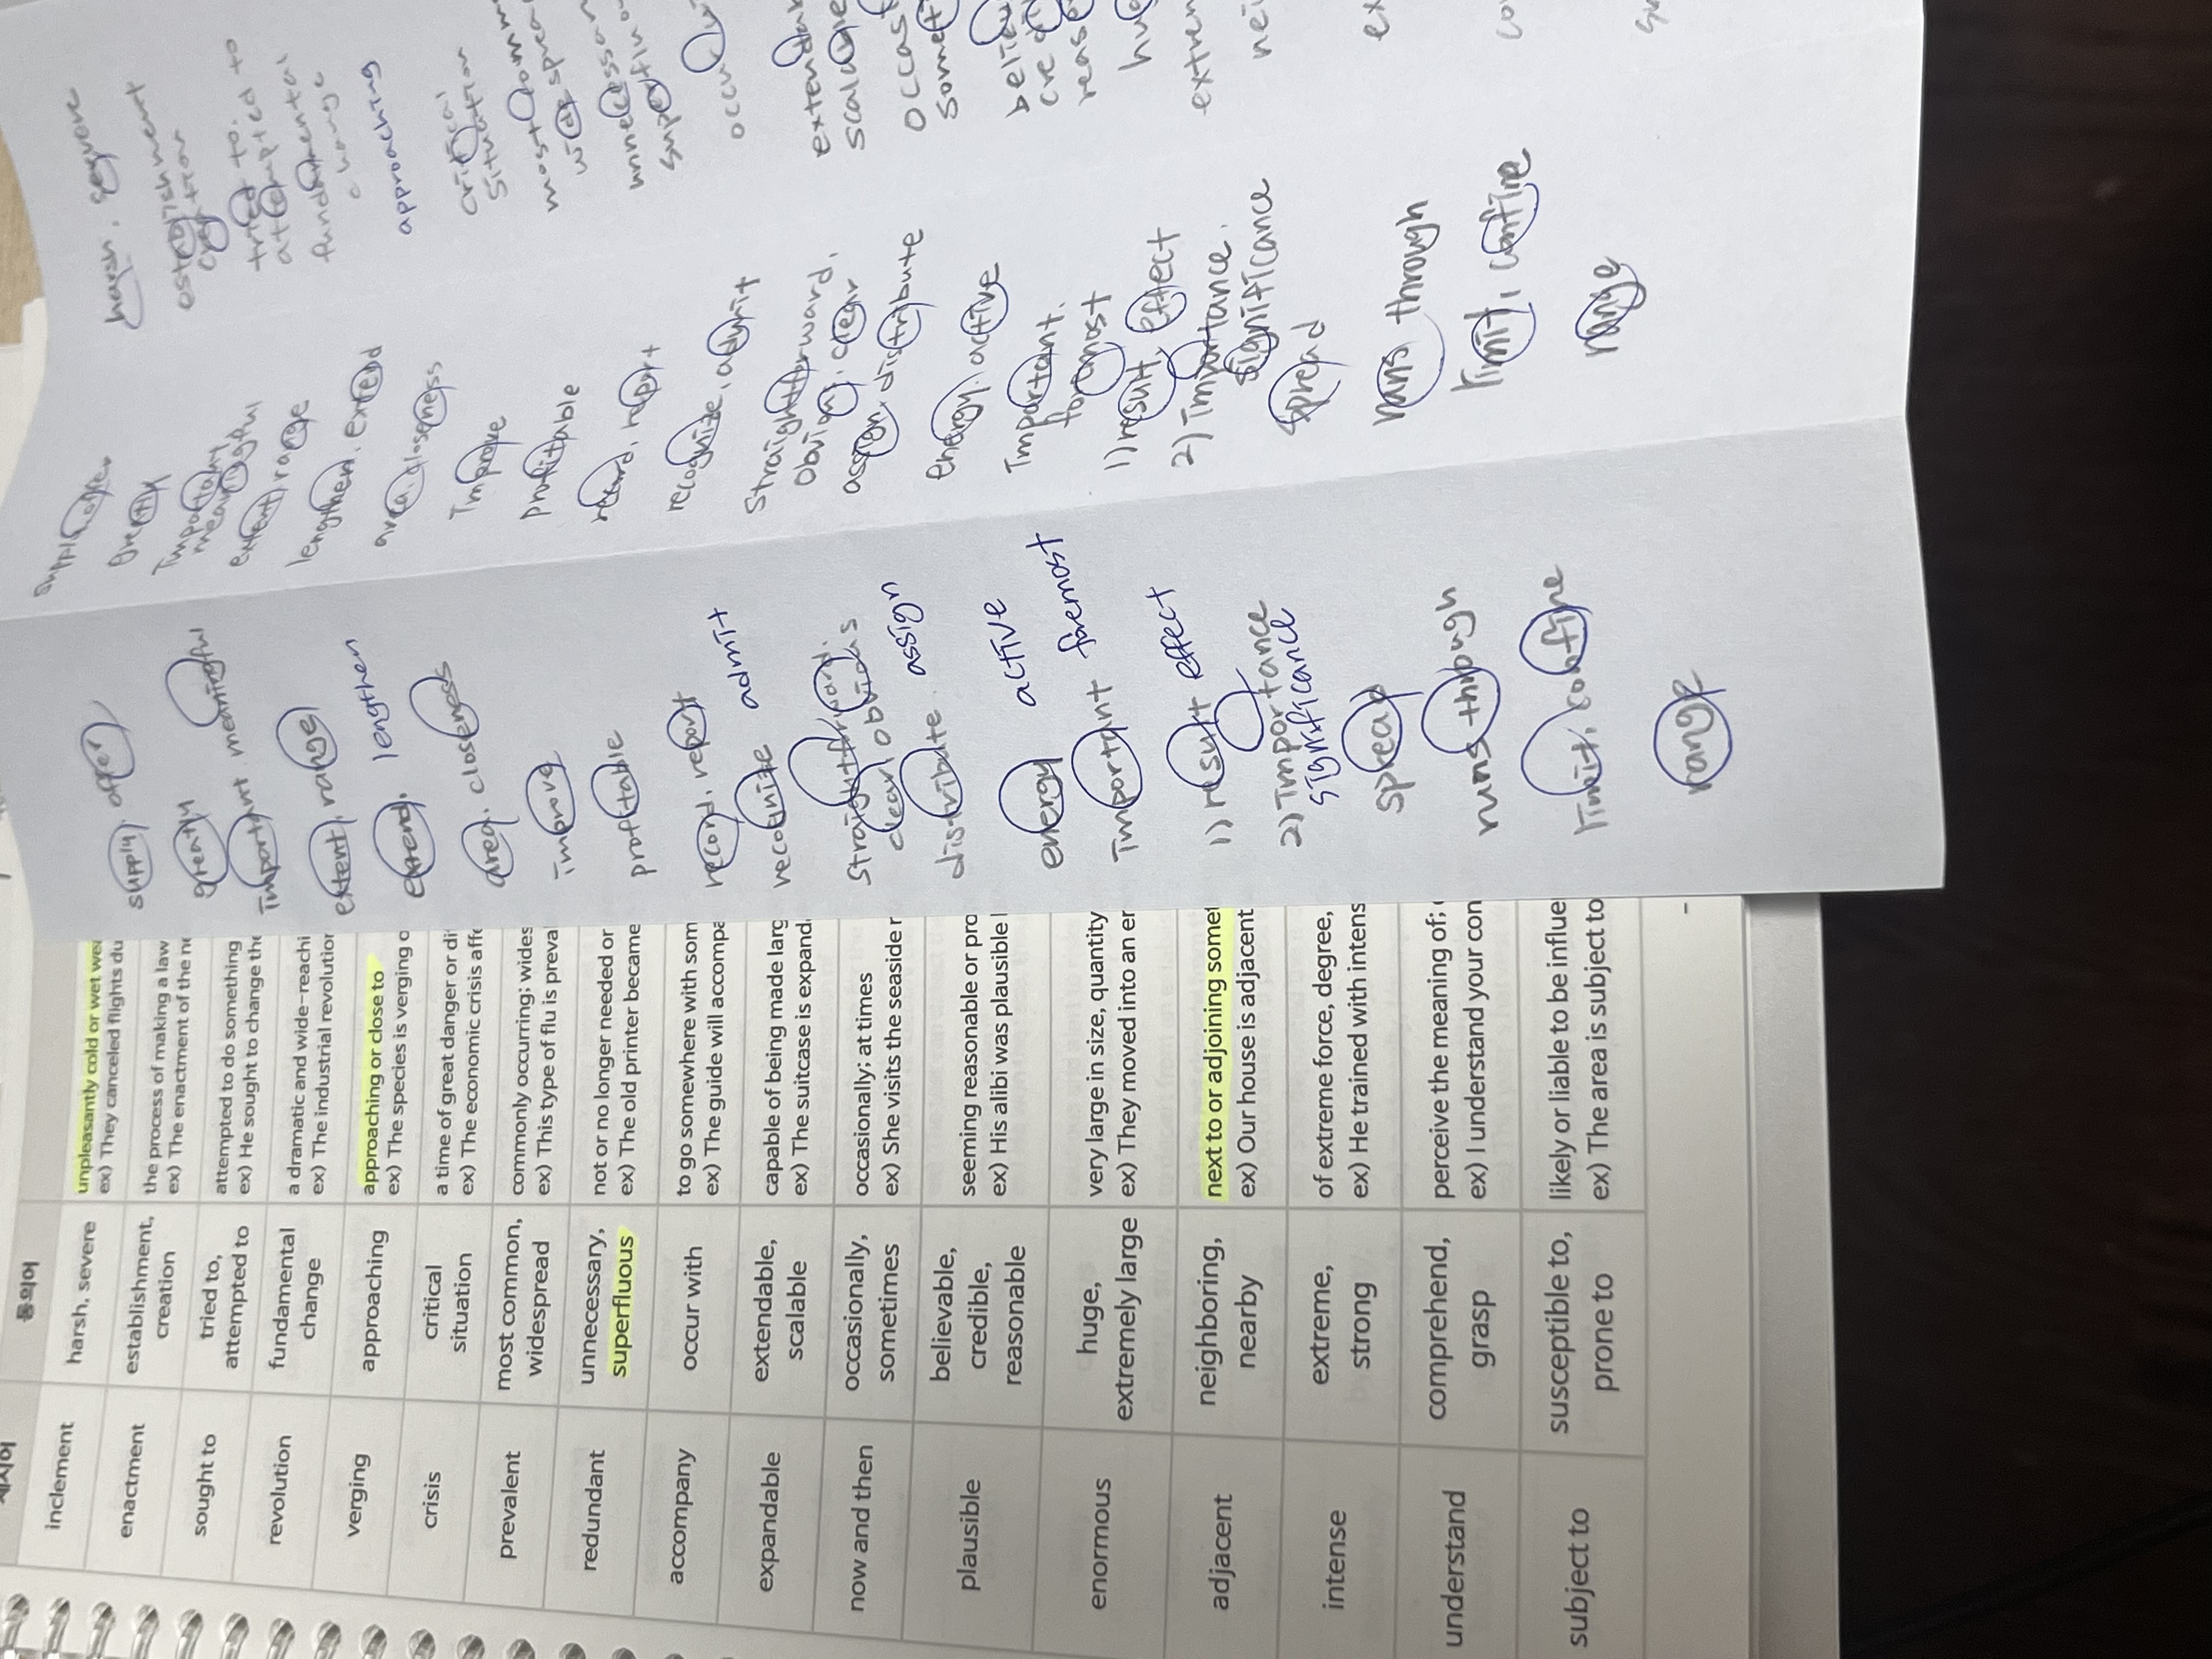 제시어
동의어
inclement
harsh, severe
unpleasantly cold or wet wea
ex) They canceled flights du
enactment
establishment,
creation
the process of making a law
ex) The enactment of the ne
sought to
tried to,
attempted to
attempted to do something
ex) He sought to change the
revolution
fundamental
change
a dramatic and wide-reachi
ex) The industrial revolution
verging
approaching
approaching or close to
ex) The species is verging o
crisis
critical
situation
a time of great danger or di
ex) The economic crisis affe
prevalent
most common,
widespread
commonly occurring; wides
ex) This type of flu is preva
redundant
unnecessary,
superfluous
not or no longer needed or
ex) The old printer became
accompany
occur with
to go somewhere with som
ex) The guide will accompa
expandable
extendable,
scalable
capable of being made larg
ex) The suitcase is expand
now and then
occasionally,
sometimes
occasionally; at times
ex) She visits the seaside r
plausible
believable,
credible,
reasonable
seeming reasonable or pro
ex) His alibi was plausible
enormous
huge,
extremely large
very large in size, quantity
ex) They moved into an er
adjacent
neighboring,
nearby
next to or adjoining somet
ex) Our house is adjacent
intense
extreme,
strong
of extreme force, degree,
ex) He trained with intens
understand
comprehend,
grasp
perceive the meaning of;
ex) I understand your con
subject to
susceptible to,
prone to
likely or liable to be influe
ex) The area is subject to
supply. offer
greatly
important. meaningful
extent, range
extend, lengthen
area. closeness
improve
profitable
record, report
recognize admit
straightforward.
clear obvious
distribute. assign
energy active
important foremost
1) result effect
2) importance
significance
spread
runs through
limit, confine
range
greatly
meaningful
extent, range
lengthen. extend
area. closeness
improve
profitable
record. report
recognize, admit
straightforward.
obvious. clear
assign. distribute
energy. active
important.
foremost
1) result, effect
2) importance.
significance
spread
runs through
limit, confine
range
harsh, severe
establishment
creation
tried to.
attempted to
fundamental
change
approaching
critical
situation
widesprea
occu
extendab
scalable
occas
somet
believ
cre
reas
hu
extrem
nei
ex
co
su